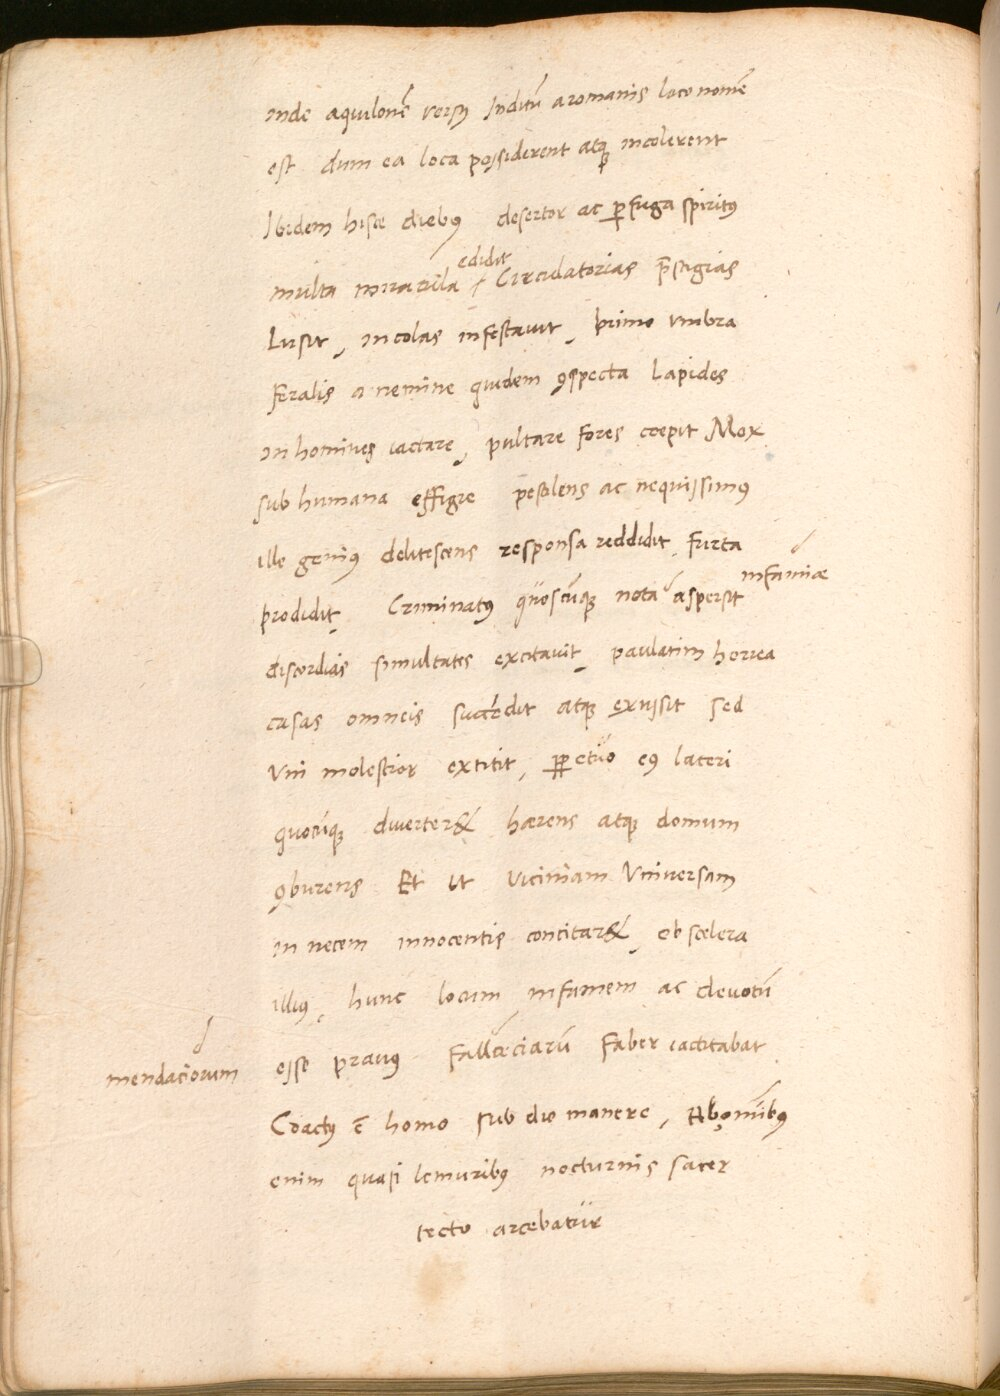 inde aquilonē versꝰ Inditū a romanis loco nomē
est dum ea loca possiderent atqꝫ incolerent
Ibidem hisce diebꝰ desertor ac ꝑfuga spiritꝰ
edidit
multa mirabila Circulatorias p̄stigias
Lusit, incolas infestavit, primo vmbra
Feralis a nemine quidem ꝯspecta Lapides
in homines iactare, pultare fores coepit Mox
sub humana effigie pestilens ac nequissimꝰ
ille geniꝰ delitescens responsa reddidit, Furta
infamiæ
prodidit, Criminatꝰ quoscūqꝫ nota aspersit
discordias simultates excitavit, paulatim horrea
casas omneis succedit atqꝫ exussit sed
Vni molestior extitit, ꝑpetuo eꝰ lateri
quocūqꝫ diverter& hærens atqꝫ domum
ꝯburens Et ut viciniam Vniversam
in necem innocentis concitar&, ob scelera
illiꝰ, hunc locum infamem ac devotū
esse pravꝰ Fallaciarū Faber iactitabat
mendaciorum
Coactꝰ ē homo sub dio manere, Ab omnibꝰ
enim quasi lemuribꝰ nocturnis sacer
tecto arcebatur